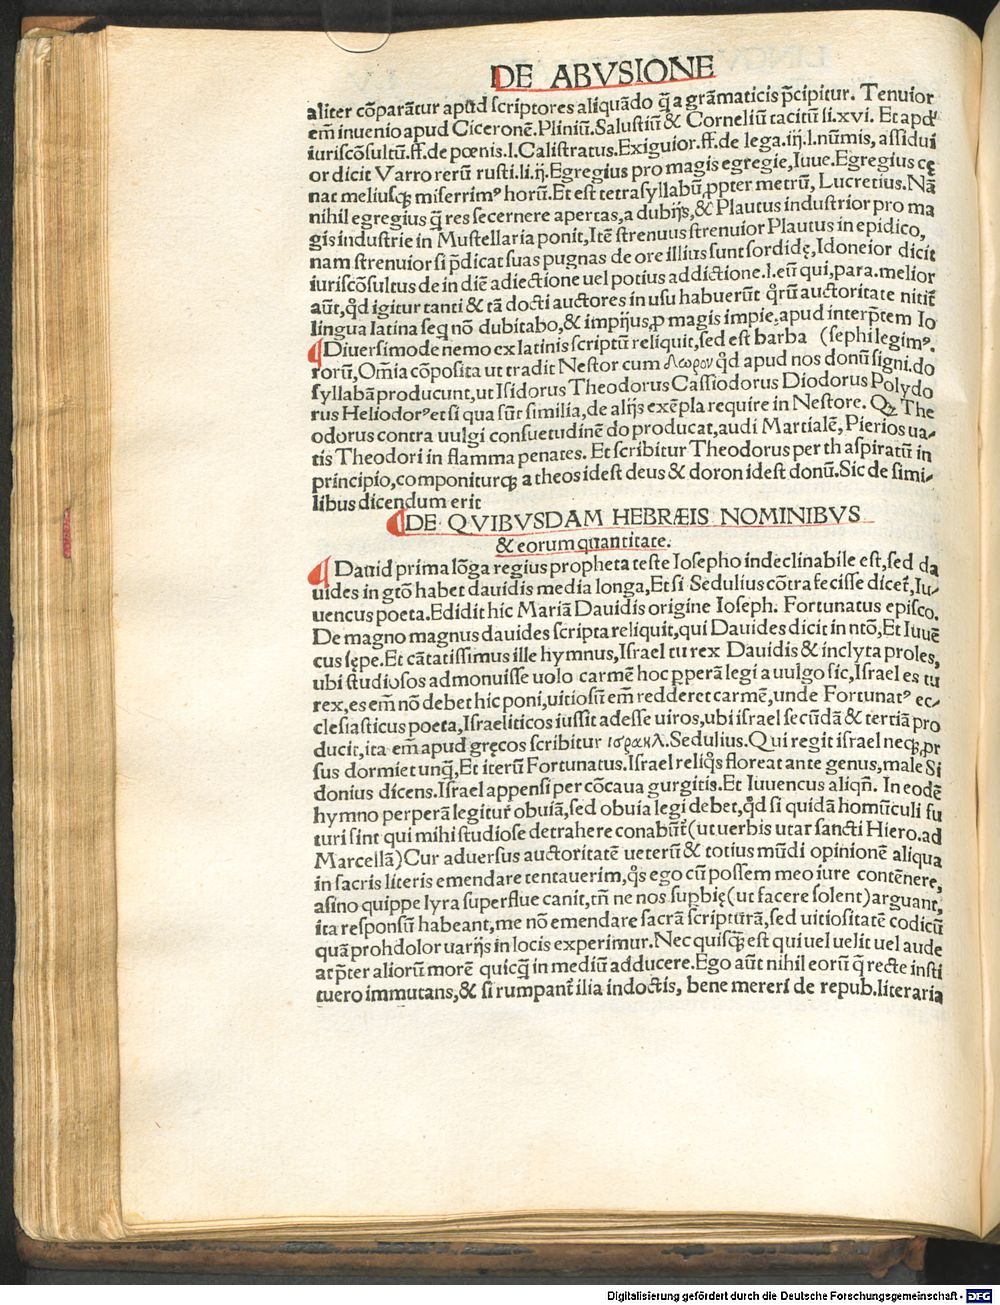 DE ABVSIONE
aliter cōparātur apud scriptores aliquādo q̄ a grāmaticis p̄cipitur. Tenuior
em̄ inuenio apud Ciceronē. Pliniū. Salustiū & Corneliū tacitū li.xvi. Et apd'
iuriscōsultū.ff.de pœnis.l.Calistratus.Exiguior.ff.de lega.iij.l.nūmis, assidui
or dicit Varro rerū rusti.li.ij.Egregius pro magis egregie,Iuue.Egregius cę
nat meliusq; miserrimꝰ horū.Et est tetrasyllabū,ꝓpter metrū, Lucretius.Nā
nihil egregius q̄ res secernere apertas,a dubijs,& Plautus industrior pro ma
gis industrie in Mustellaria ponit,Itē strenuus strenuior Plautus in epidico,
nam strenuior si p̄dicat suas pugnas de ore illius sunt sordidę,Idoneior dicit
iuriscōsultus de in diē adiectione uel potius addictione.l.eū qui,para.melior
aūt,qd̓ igitur tanti & tā docti auctores in usu habuerūt qrū auctoritate nitit̄
lingua latina seq nō dubitabo,& impijus,ꝓ magis impie,apud interp̄tem Io
¶Diuersimode nemo ex latinis scriptū reliquit,sed est barba (sephi legimꝰ.
rorū,Om̄ia cōposita ut tradit Nestor cum Δωρον qd̓ apud nos donū signi.do
syllabā producunt,ut Isidorus Theodorus Cassiodorus Diodorus Polydo
rus Heliodorꝰ et si qua sūt similia,de alijs exēpla require in Nestore. Qꝫ The
odorus contra uulgi consuetudinē do producat,audi Martialē, Pierios ua-
tis Theodori in flamma penates. Et scribitur Theodorus per th aspiratū in
principio,componiturq; a theos idest deus & doron idest donū.Sic de simi-
libus dicendum erit
¶DE QVIBVSDAM HEBRÆIS NOMINIBVS
& eorum quantitate.
¶ Dauid prima lōga regius propheta teste Iosepho indeclinabile est,sed da
uides in gtō habet dauidis media longa,Et si Sedulius cōtra fecisse dicet̄, Iu-
uencus poeta.Edidit hic Mariā Dauidis origine Ioseph. Fortunatus episco.
De magno magnus dauides scripta reliquit,qui Dauides dicit in ntō,Et Iuuē
cus sępe.Et cātatissimus ille hymnus,Israel tu rex Dauidis & inclyta proles,
ubi studiosos admonuisse uolo carmē hoc ꝑperā legi a uulgo sic,Israel es tu
rex,es em̄ nō debet hic poni,uitiosū em̄ redderet carmē,unde Fortunatꝰ ec-
clesiasticus poeta,Israeliticos iussit adesse uiros,ubi israel secūdā & tertiā pro
ducit,ita em̄ apud gręcos scribitur ισραηλ.Sedulius.Qui regit israel neq;,pr
sus dormiet unq̄,Et iterū Fortunatus.Israel reliqs floreat ante genus,male Si
donius dicens.Israel appensi per cōcaua gurgitis.Et Iuuencus aliqn̄. In eodē
hymno perperā legitur̄ obuiā,sed obuia legi debet,qd̓ si quidā homūculi fu
turi sint qui mihi studiose detrahere conabūt̄(ut uerbis utar sancti Hiero.ad
Marcellā)Cur aduersus auctoritatē ueterū & totius mūdi opinionē aliqua
in sacris literis emendare tentauerim,qs ego cū possem meo iure contēnere,
asino quippe lyra superflue canit,tn̄ ne nos supbię(ut facere solent)arguant,
ita responsū habeant,me nō emendare sacrā scripturā,sed uitiositatē codicū
quā prohdolor uarijs in locis experimur.Nec quisq̄ est qui uel uelit uel aude
at p̄ter aliorū morē quicq̄ in mediū adducere.Ego aūt nihil eorū q̄ recte insti
tuero immutans,& si rumpant̄ ilia indoctis, bene mereri de repub.literaria
Digitalisierung gefördert durch die Deutsche Forschungsgemeinschaft - DFG